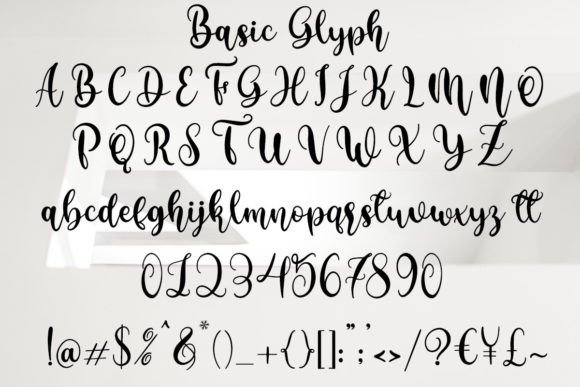 Basic Glyph
ABCDEFGHIJKLMNO
PQRSTUVWXYZ
abcdefghijklmnopqrstuvwxyz tt
01234567890
!@#$%^&*()_+{}[]:";'<>/?€¥£~